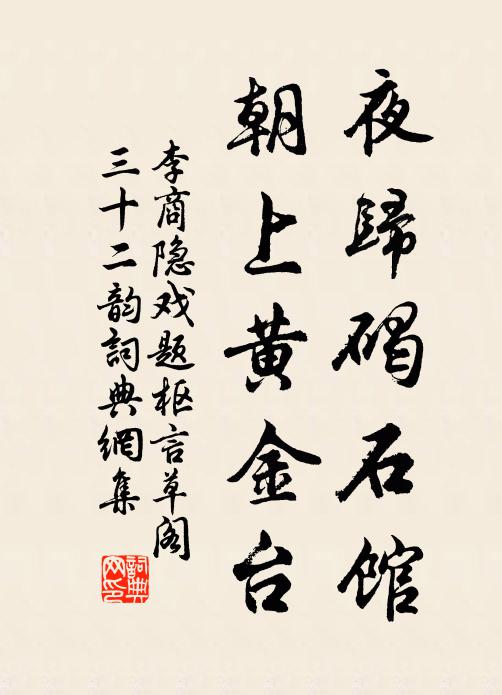 夜歸碣石館
朝上黄金台
李商隐戏题枢言草阁
三十二韵詞典網集
詞典网印